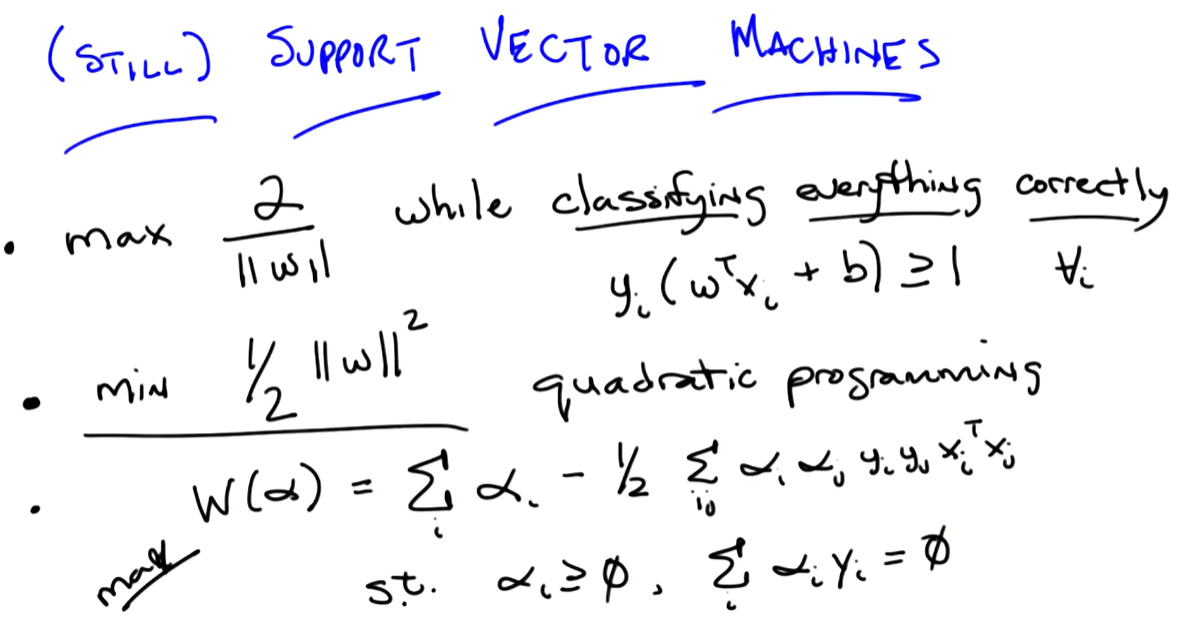 (STILL) SUPPORT VECTOR MACHINES
• max 2/||w|| while classifying everything correctly
yᵢ(wᵀxᵢ + b) ≥ 1 ∀ᵢ
• min ½ ||w||² quadratic programming
• W(α) = Σᵢ αᵢ - ½ Σᵢⱼ αᵢ αⱼ yᵢ yⱼ xᵢᵀxⱼ
max s.t. αᵢ ≥ ∅, Σᵢ αᵢyᵢ = ∅